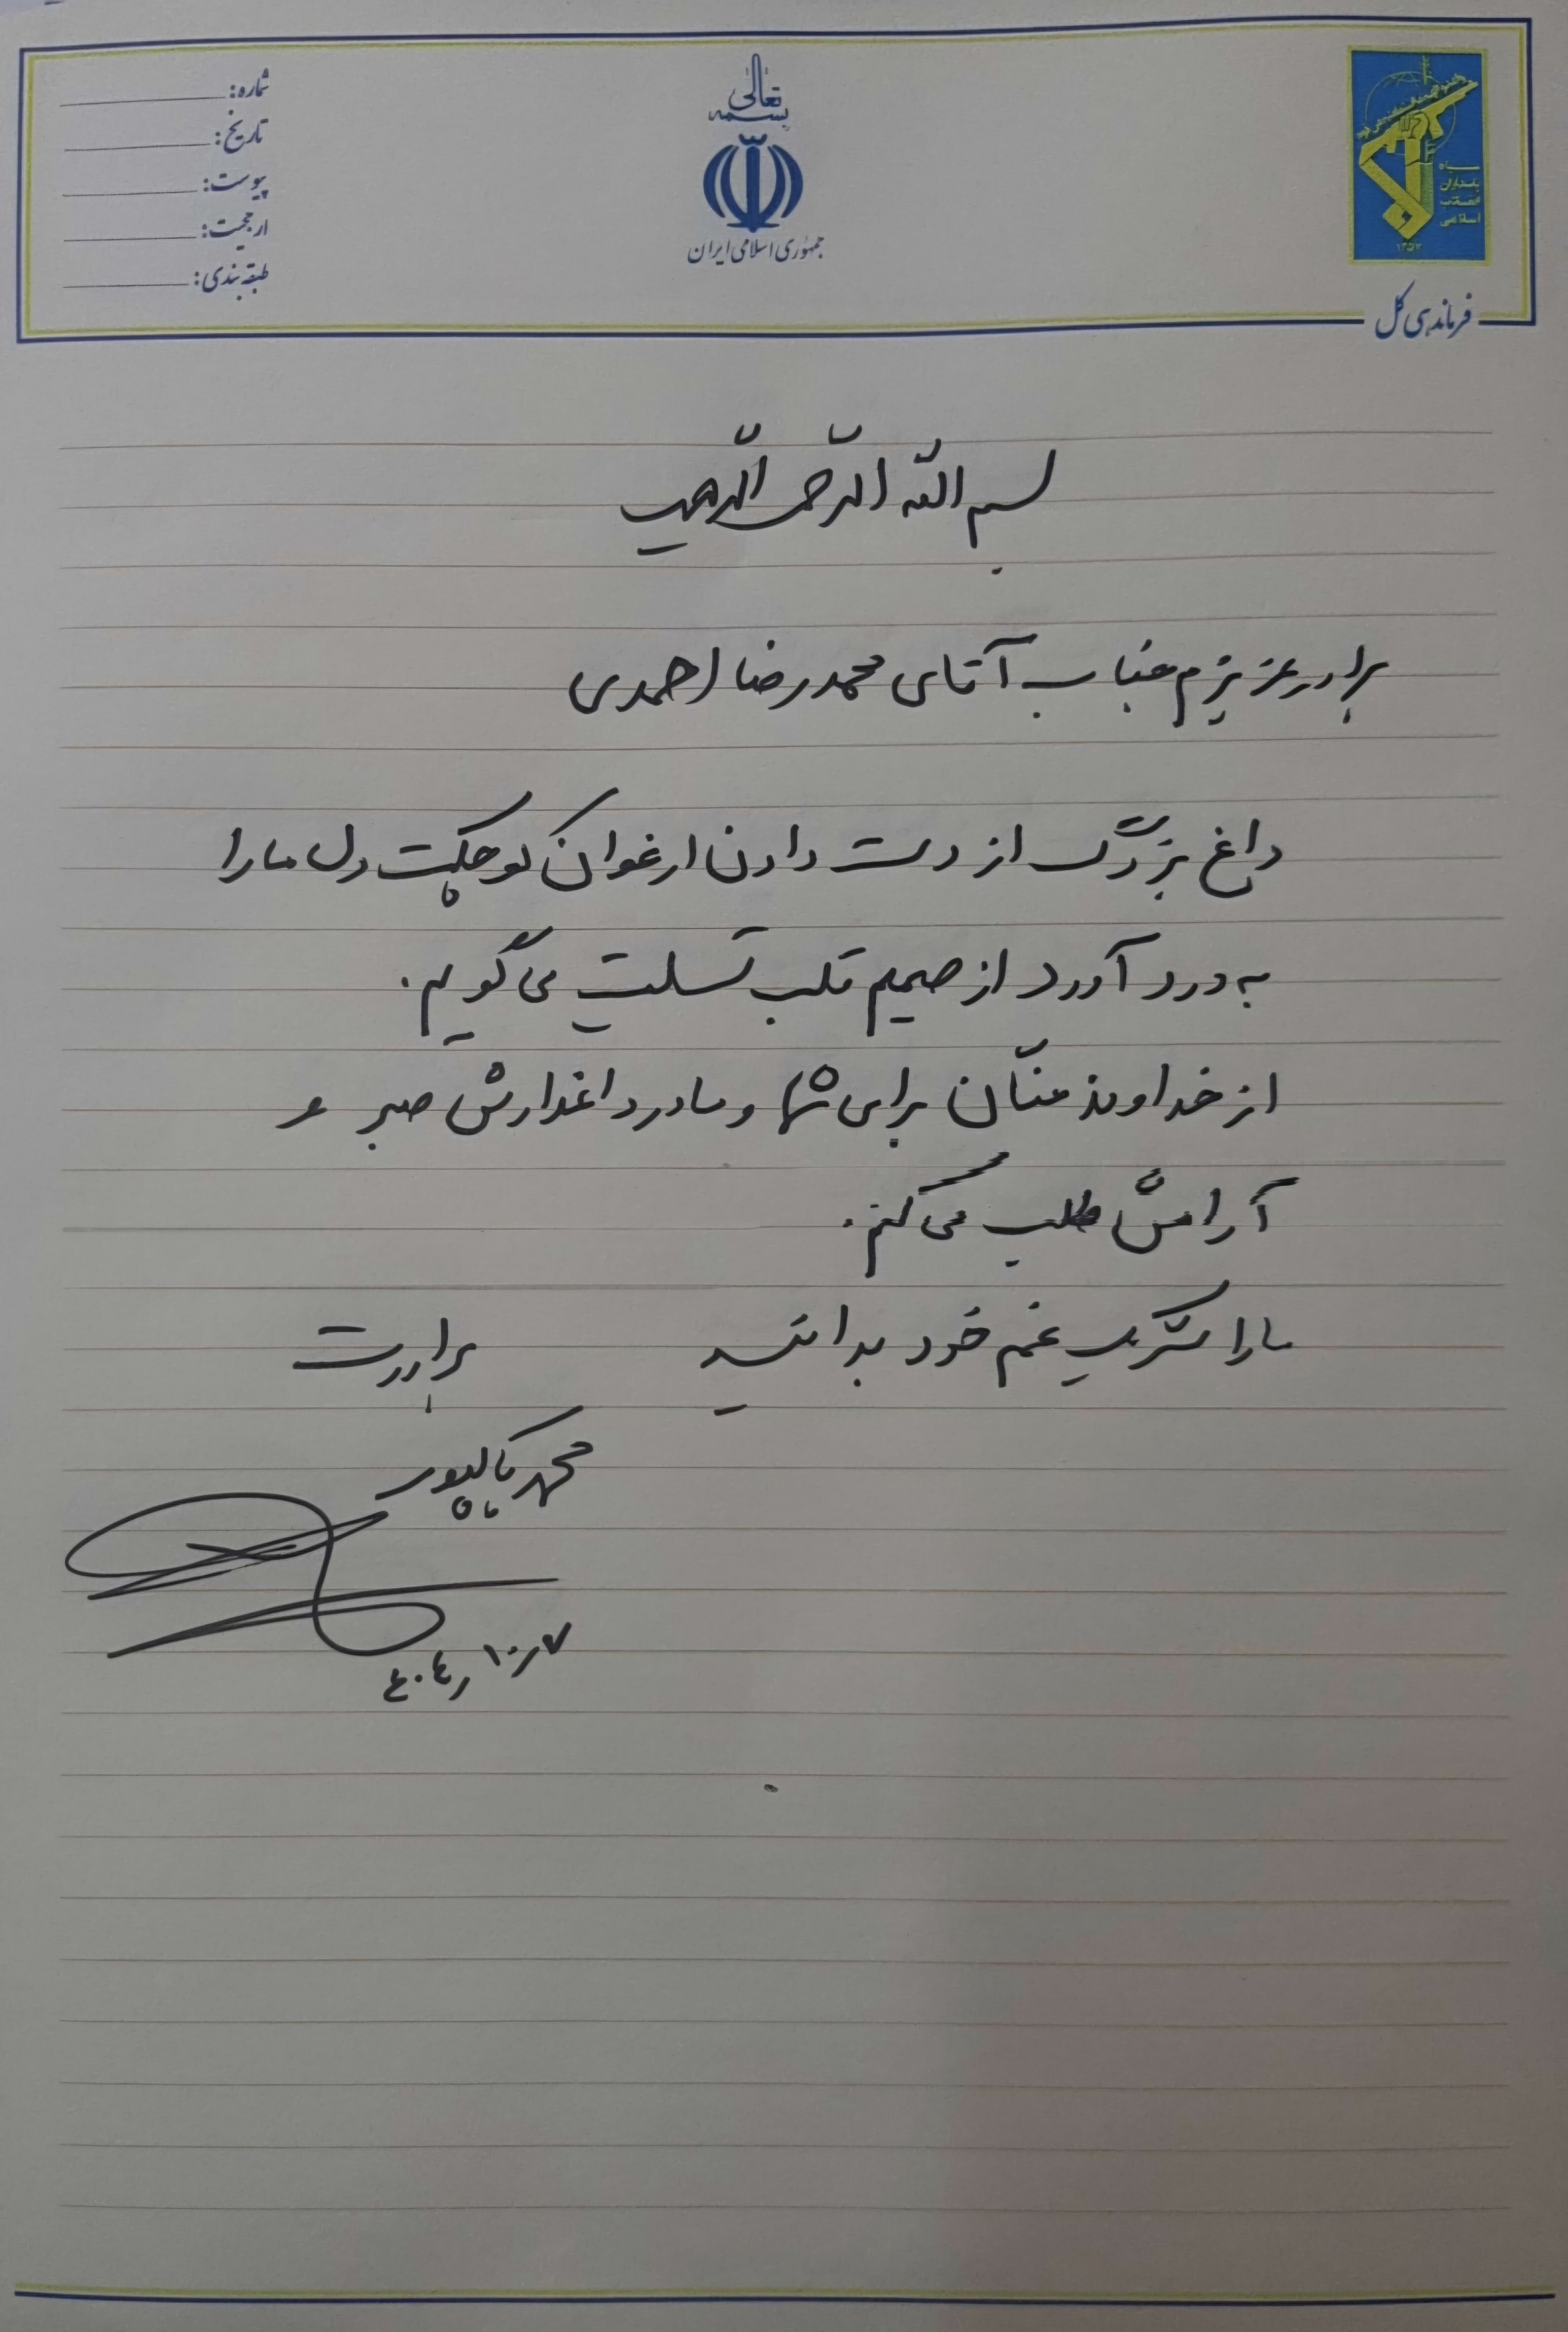 بسمه تعالی
جمهوری اسلامی ایران
شماره:
تاریخ:
پیوست:
ارجحیت:
طبقه‌بندی:
سپاه
پاسداران
انقلاب
اسلامی
۱۳۵۷
فرماندهی کل
بسم الله الرّحمن الرّحیم
برادر عزیزم جناب آقای محمدرضا احمدی
داغ بزرگ از دست دادن ارغوان کوچکت دل ما را
به درد آورد از صمیم قلب تسلیت می‌گویم.
از خداوند منّان برای شما و مادر داغدارش صبر و
آرامش طلب می‌کنم.
ما را شریک غم خود بدانید
برادرت
محمد پاکپور
۴۰۴/۱۰/۷